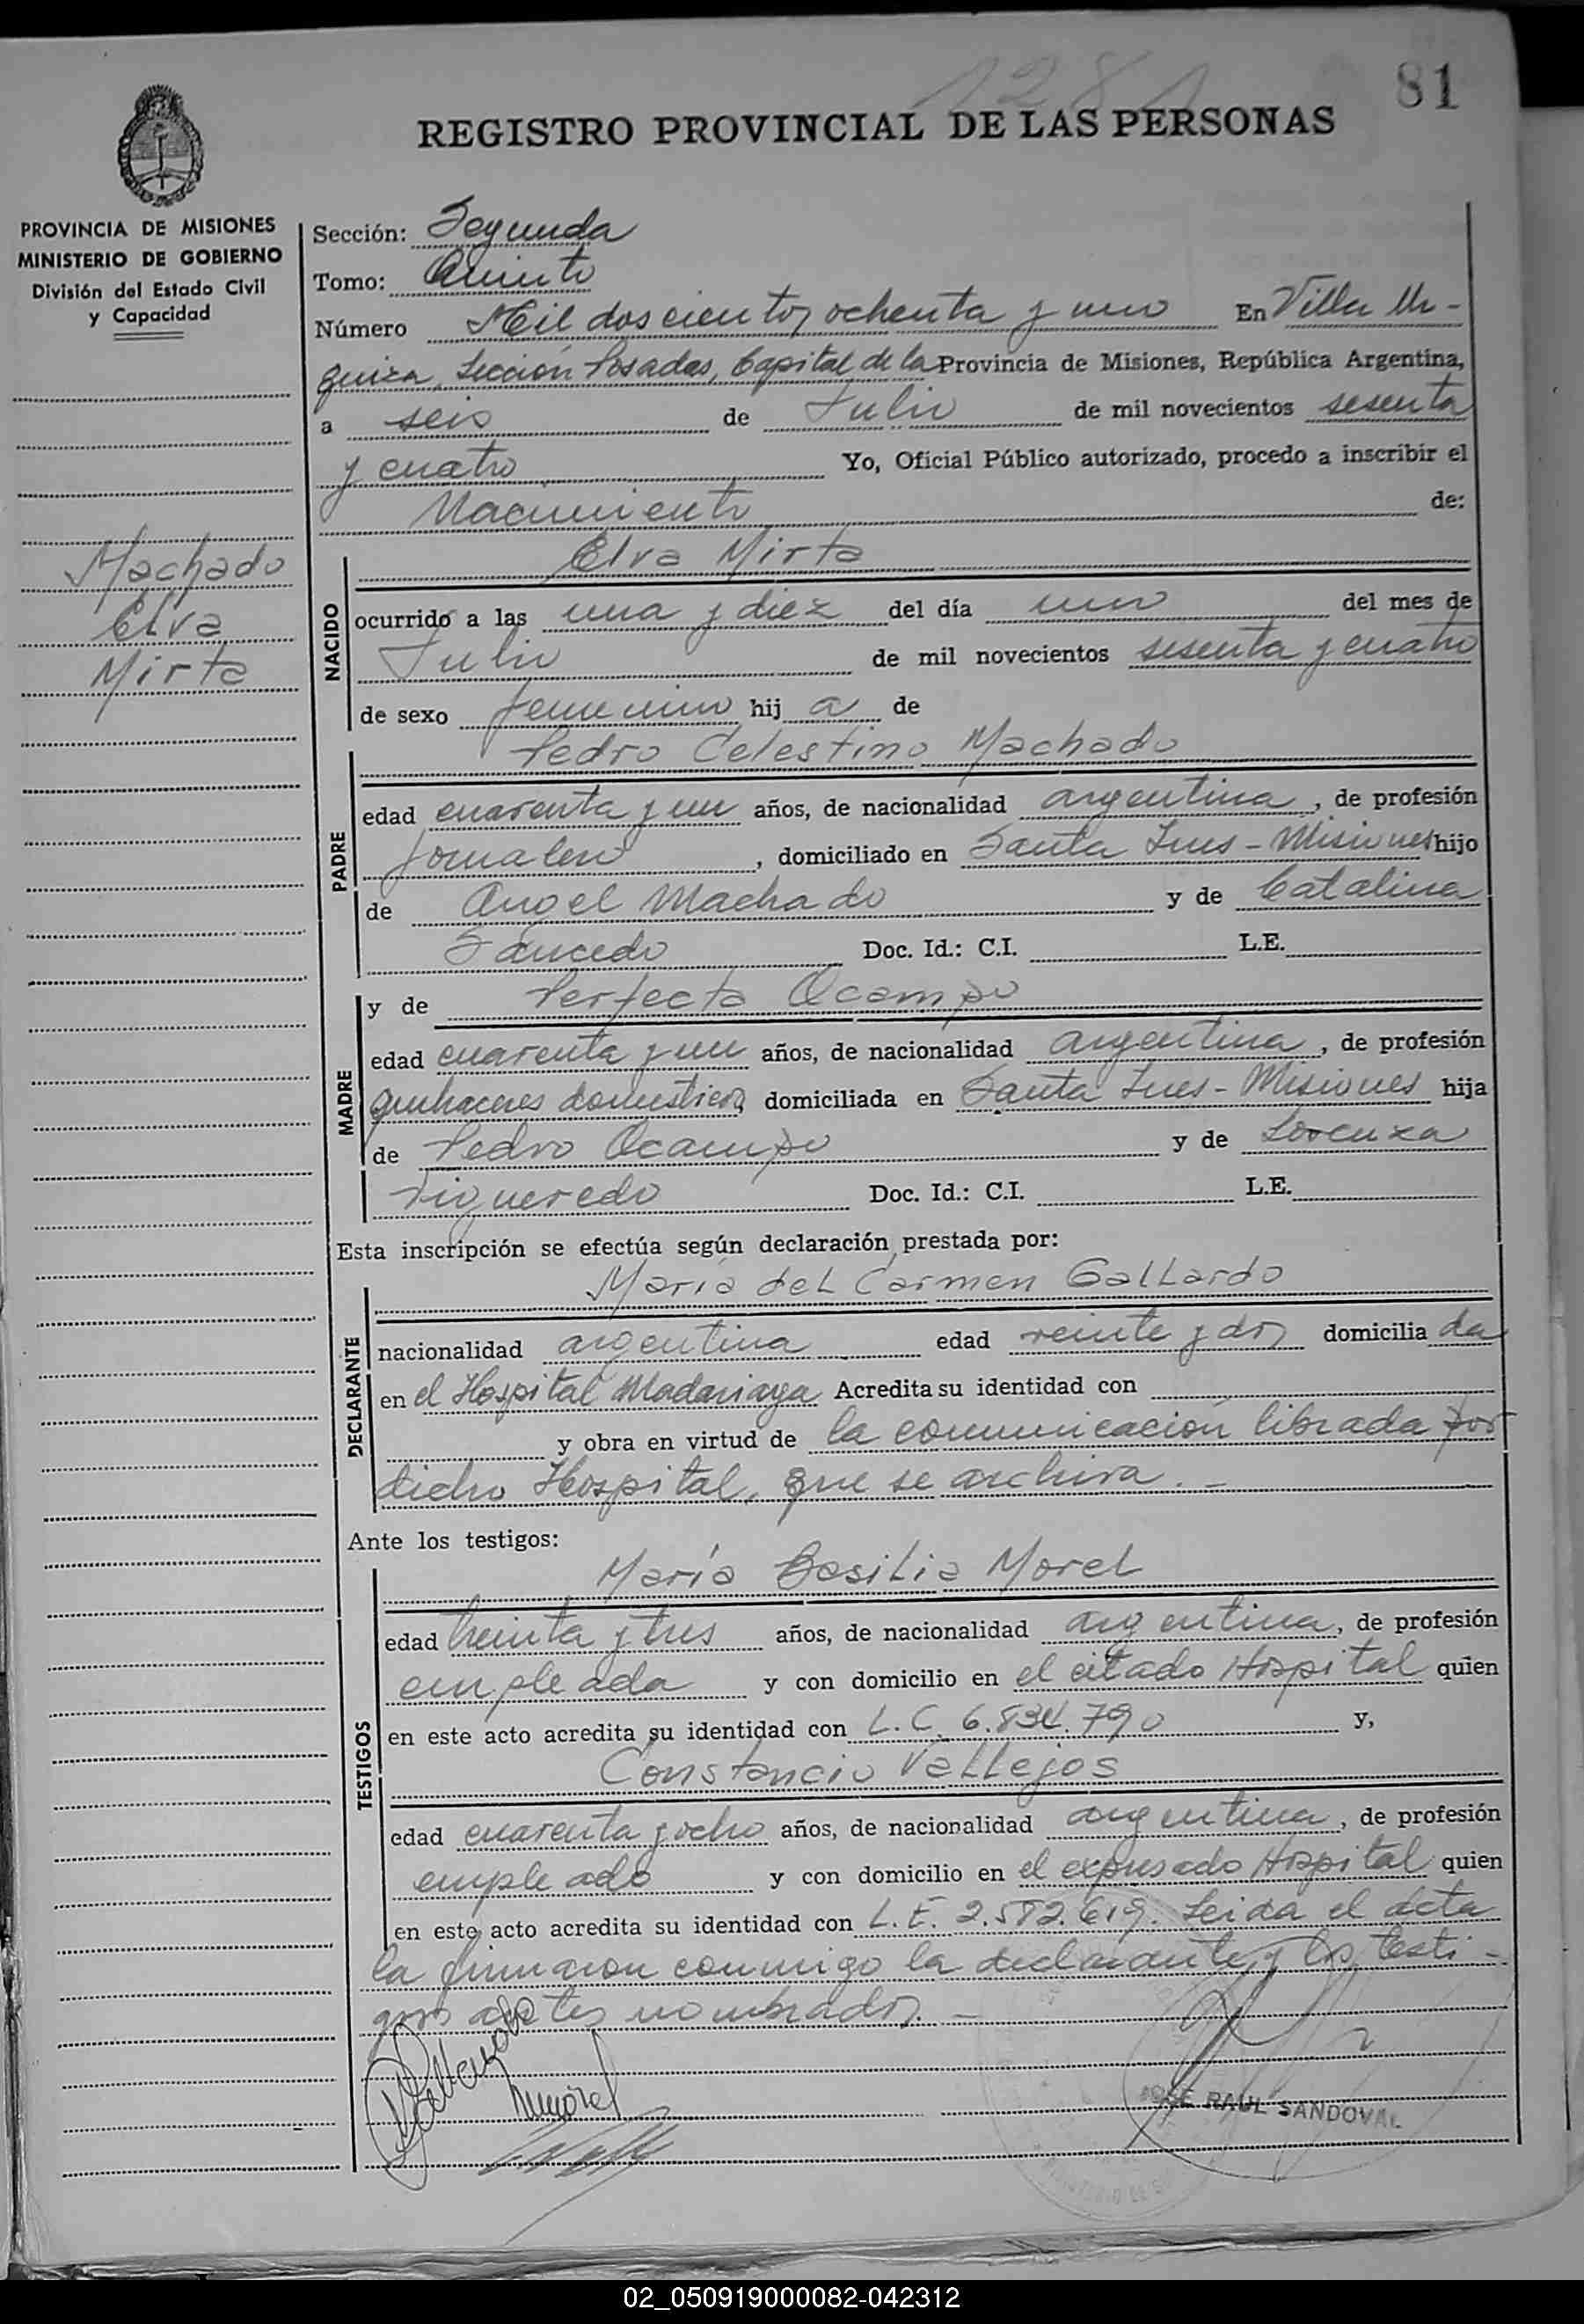 1281
81
REGISTRO PROVINCIAL DE LAS PERSONAS
PROVINCIA DE MISIONES
MINISTERIO DE GOBIERNO
División del Estado Civil
y Capacidad
Machado
Elva
Mirta
Sección: Segunda
Tomo: Quinto
Número Mil doscientos ochenta y uno En Villa Ur-
quiza, Sección Posadas, Capital de la Provincia de Misiones, República Argentina,
a seis de Julio de mil novecientos sesenta
y cuatro Yo, Oficial Público autorizado, procedo a inscribir el
Nacimiento de:
NACIDO
Elva Mirta
ocurrido a las una y diez del día uno del mes de
Julio de mil novecientos sesenta y cuatro
de sexo femenino hij a de
PADRE
Pedro Celestino Machado
edad cuarenta y un años, de nacionalidad argentina, de profesión
jornalero, domiciliado en Santa Ines - Misiones hijo
de Angel Machado y de Catalina
Saucedo Doc. Id.: C.I. L.E.
MADRE
y de Perfecta Ocampo
edad cuarenta y un años, de nacionalidad argentina, de profesión
quehaceres domesticos domiciliada en Santa Ines - Misiones hija
de Pedro Ocampo y de Lorenza
Figueredo Doc. Id.: C.I. L.E.
Esta inscripción se efectúa según declaración prestada por:
DECLARANTE
María del Carmen Gallardo
nacionalidad argentina edad veinte y dos domicilia da
en el Hospital Madariaga Acredita su identidad con
y obra en virtud de la comunicación librada por
dicho Hospital, que se archiva.-
Ante los testigos:
TESTIGOS
María Basilia Morel
edad treinta y tres años, de nacionalidad argentina, de profesión
empleada y con domicilio en el citado Hospital quien
en este acto acredita su identidad con L.C. 6.834.790 y,
Constancio Vallejos
edad cuarenta y ocho años, de nacionalidad argentina, de profesión
empleado y con domicilio en el expresado Hospital quien
en este acto acredita su identidad con L.E. 2.582.619. Leida el acta
la firmaron conmigo la declarante y los testi-
gos antes nombrados.-
JOSE RAUL SANDOVAL
02_050919000082-042312